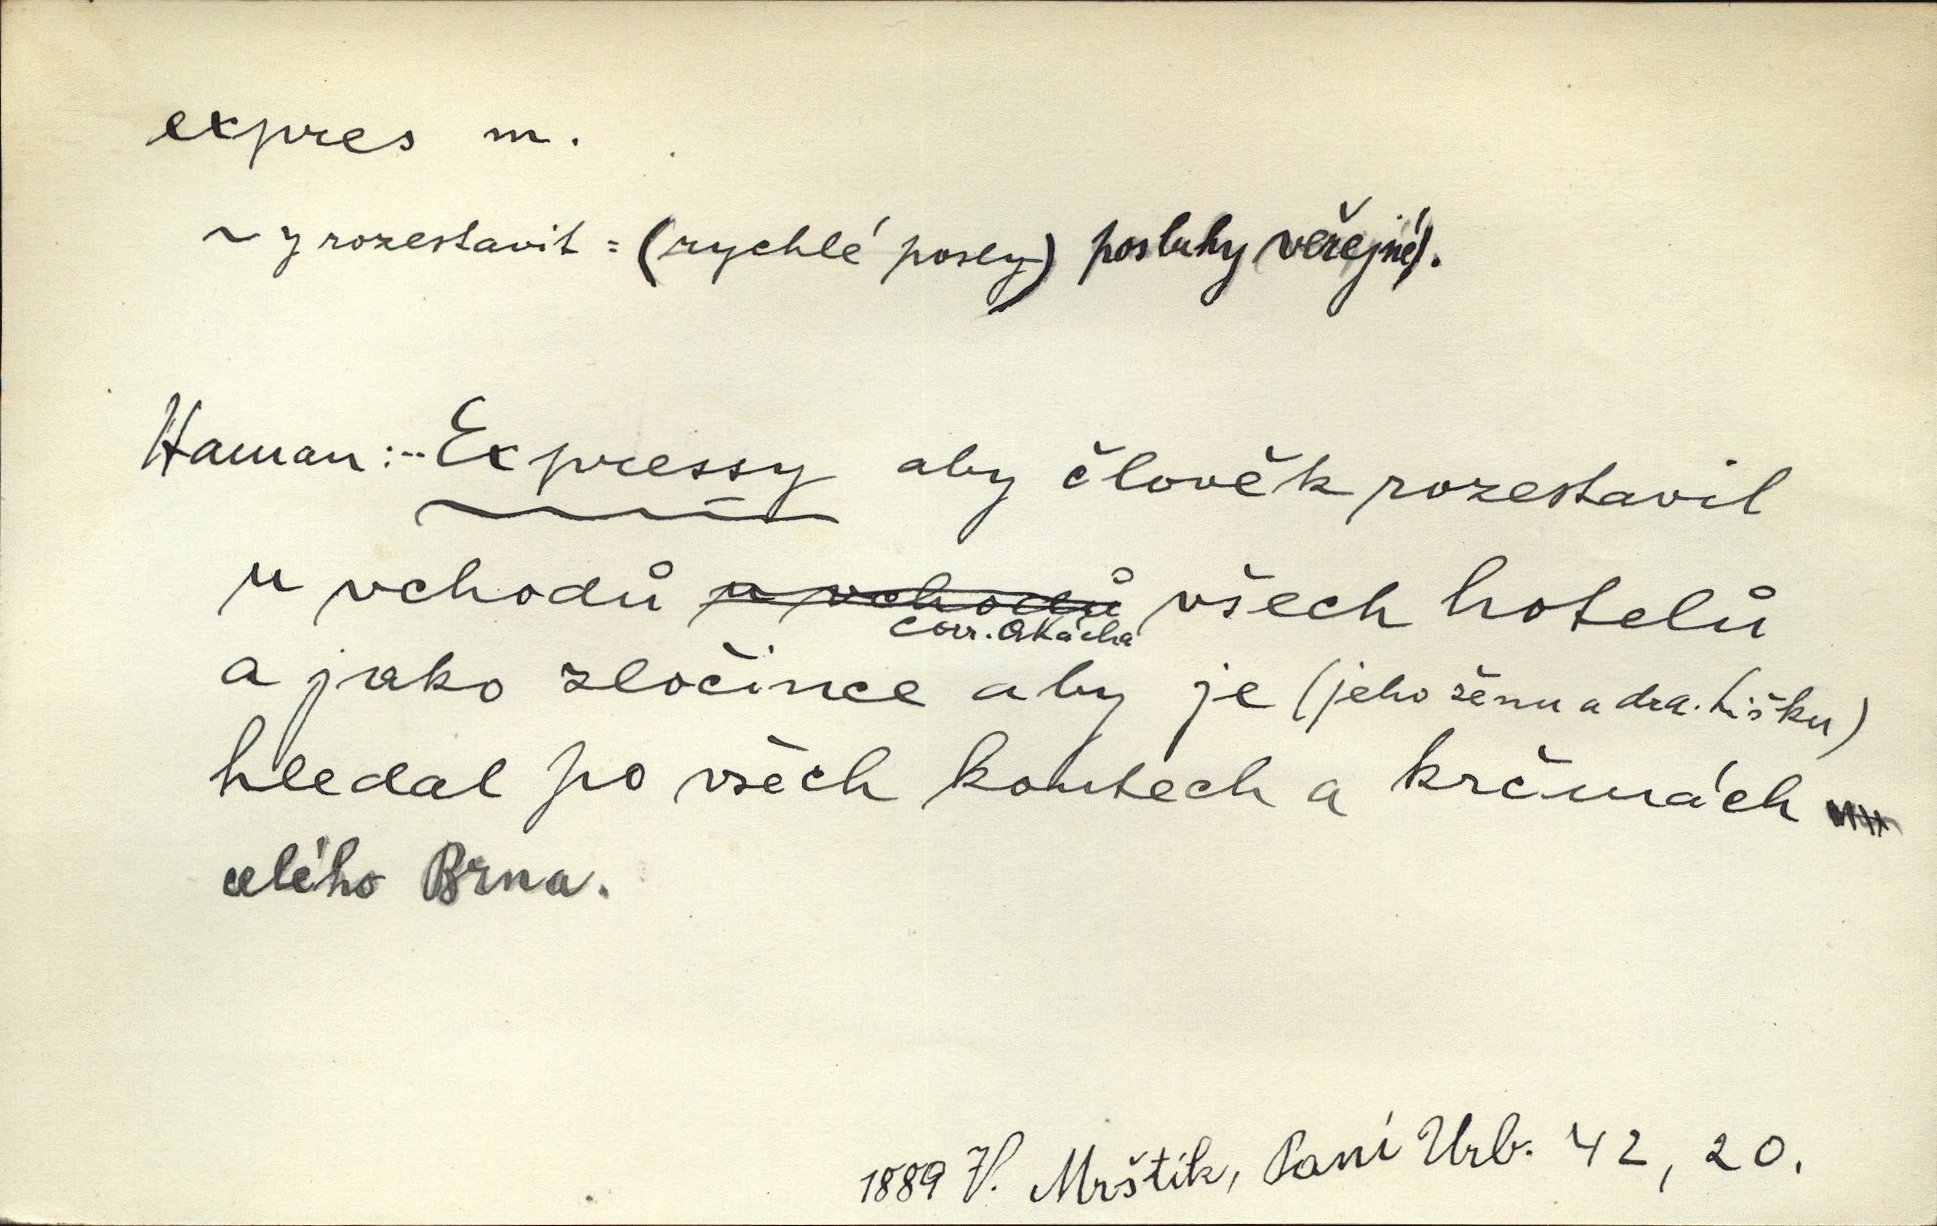 expres m.
~y rozestavit = (rychlé posly) posluhy veřejné).
Haman:.. Expressy aby člověk rozestavil
u vchodů u vchodů všech hotelů
corr.
a jako zločince aby je (jeho ženu a dra. Lišku)
hledal po všech koutech a krčmách
celého Brna.
1889 V. Mrštík, Paní Urb. 42, 20.